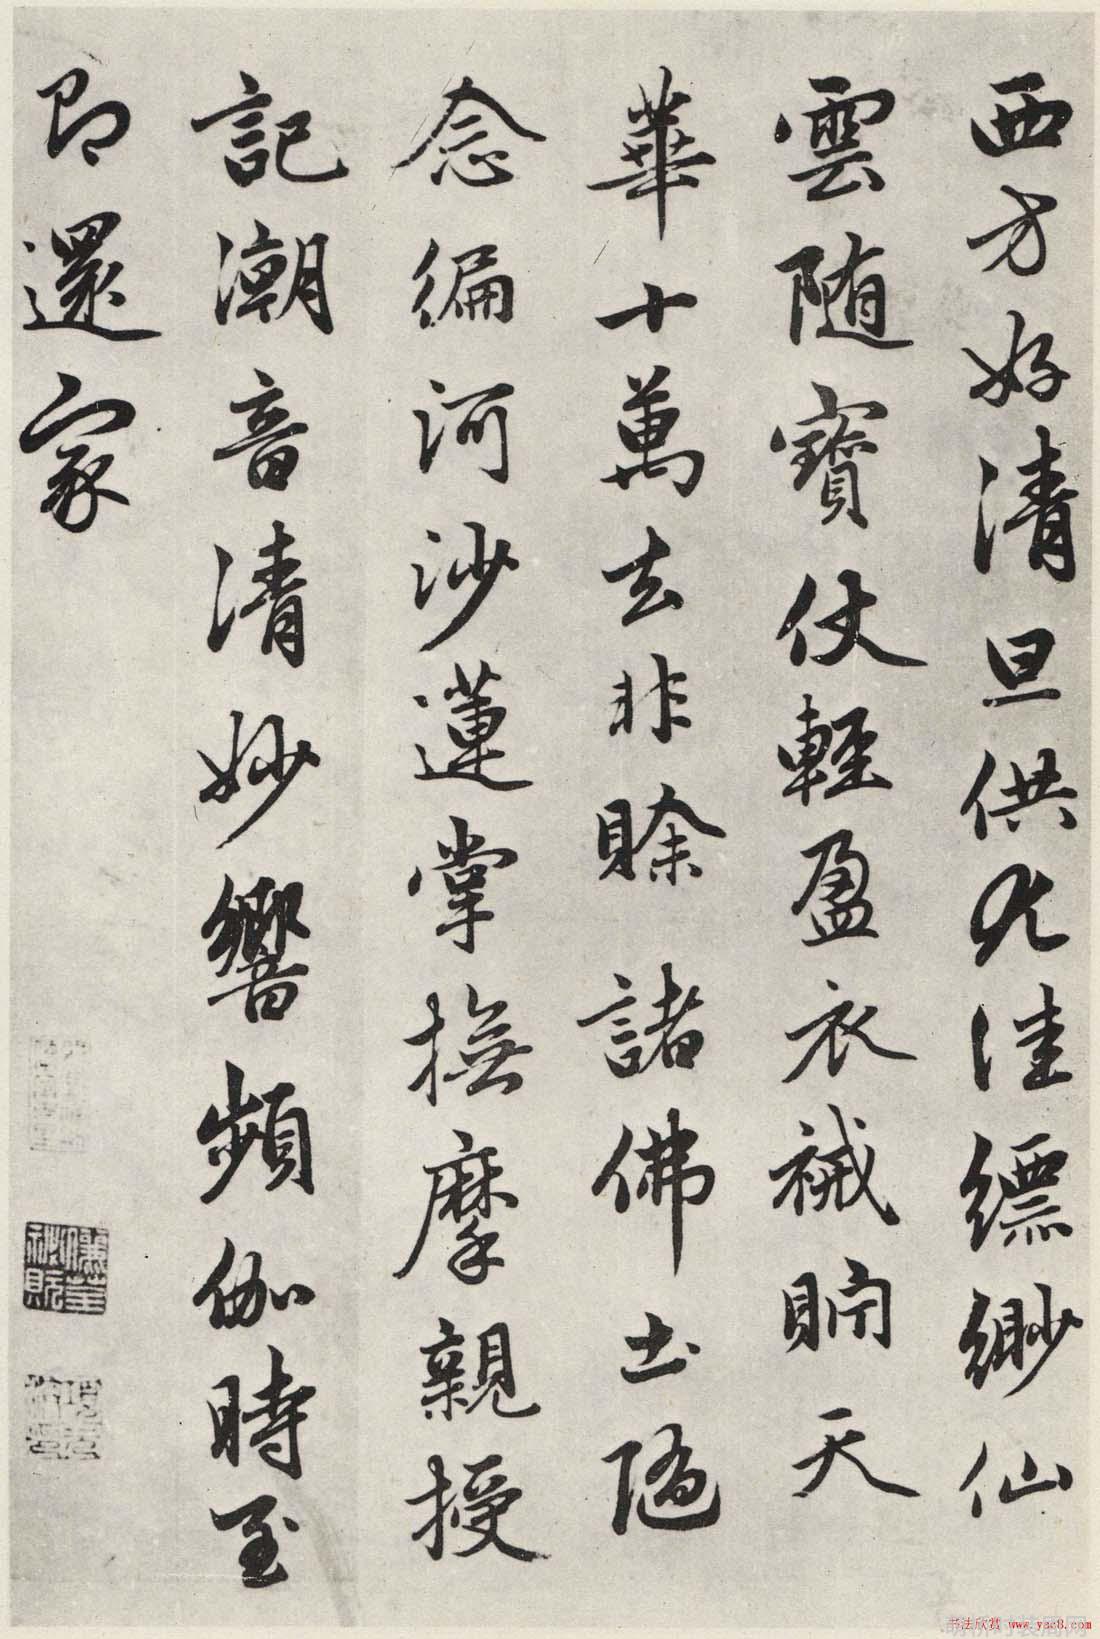 西方好清旦供无涯縹緲仙
雲随寶仗輕盈衣祴貯天
華十萬去非賒諸佛土隨
念編河沙蓮掌撫摩親授
記潮音清妙響頻伽時至
即還家
书法欣赏 www.yac8.com